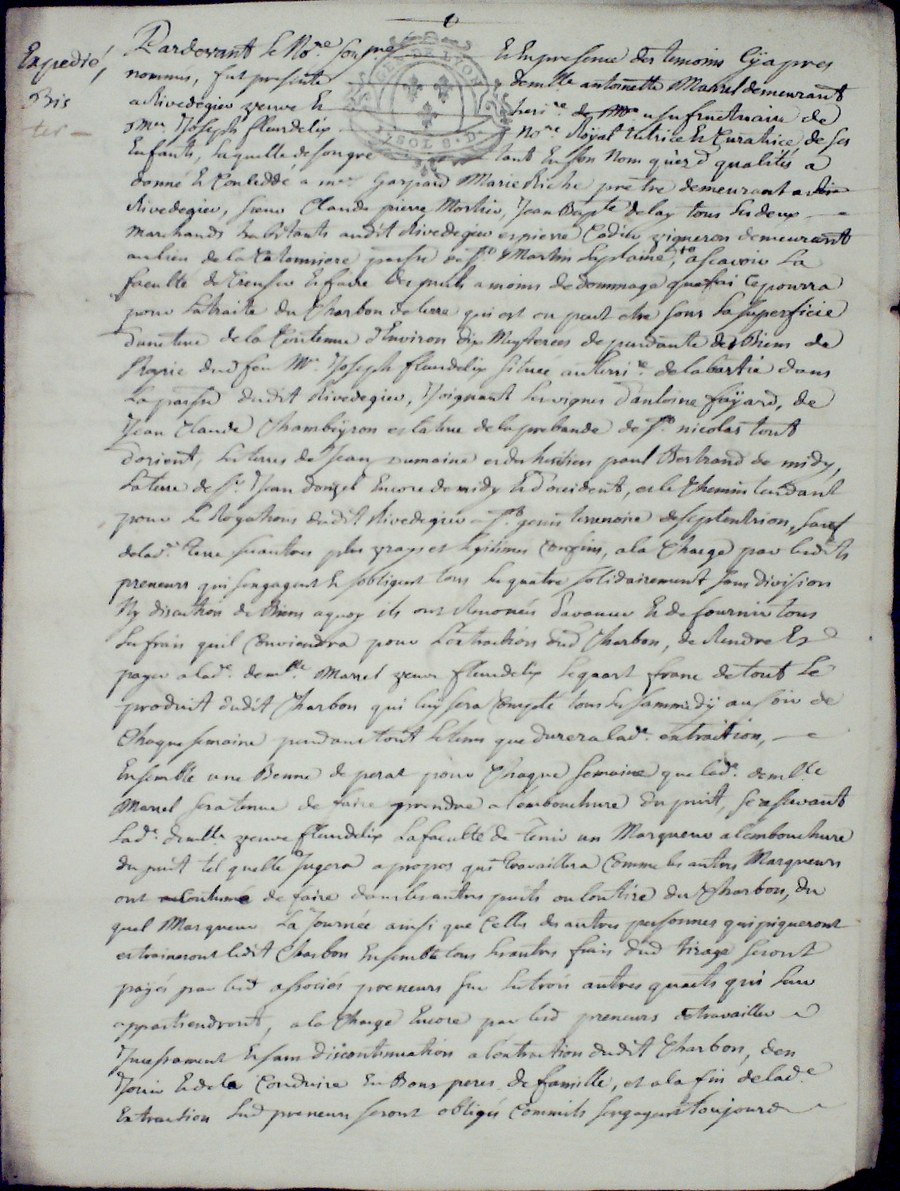 Expedié,
Bis
ter —
Pardevant le No.re Sousigné Et En presence des temoins Cy apres
nommés, fut presente demlle antoinette Marrel demeurant
a Rivedegier veuve Et heri.re usufructuaire de
sr Mre Joseph fleurdelix No.re Royal tutrice Et Curatrice de ses
Enfants, laquelle de son gré tant En son Nom qu'es d. qualités a
donné Et Concedde a mre Gaspard Marie Riche prêtre demeurant a
Rivedegier, sieurs Claude pierre Mortier, Jean Bapte delay tous les deux
marchands habitants audit Rivedegier et pierre Cadier vigneron demeurant
au lieu de la Catonniere parsse de St Martin la plaine, ascavoir La
faculté de Creuser Et faire des puits a moins de dommage que fai ce pourra
pour l'attraite du Charbon de terre qui est ou peut etre sous la superficie
d'une terre de la Contenue d'Environ dix Meyterees dependante des Biens de
Royrie dud feu Mre Joseph fleurdelix située au terri.re de la bartie dans
La parsse dudit Rivedegier, Joignant les vignes d'antoine fayard, de
Jean Claude Chambeyron et la terre de la prebande de St nicolas tout
d'orient, les terres de Jean dumaine et des heritiers paul Bertrand de midy,
La terre de Sr Jean donzel Encore de midy Et d'occident, et le Chemin tendant
pour les Rogations dudit Rivedegier a St genis terrenoire de septentrion, sauf
de lad. terre ses autres plus vrays et legitimes Confins, a la Charge par lesdits
preneurs qui s'engagent Et s'obligent tous les quatre solidairement sans division
Ny discution de Biens aquoy ils ont Renoncés d'avancer Et de fournir tous
les frais quil Conviendra pour l'extraction dud Charbon, de Rendre Et
payer a lad. demlle Marrel veuve fleurdelix le quart franc de tout Le
produit dudit Charbon qui luy sera Compté tous les sammedy au soir de
Chaque semaine pendant tout le tems que durera lad. extraction,
Ensemble une Benne de perat pour Chaque semaine que lad. demlle
Marrel sera tenue de faire prendre a l'embouchure du puit, se reservant
Lad. demlle veuve fleurdelix La faculté de tenir un Marqueur a l'embouchure
du puit tel quelle Jugera a propos qui travaillera Comme les autres Marqueurs
ont accoutumé de faire dans les autres puits ou l'on tire du Charbon, du
quel Marqueur La Journée ainsi que Celles des autres personnes qui piqueront
et traineront ledit Charbon Ensemble tous les autres frais dud tirage seront
payés par lesd associés preneurs sur les trois autres quarts qui leur
appartiendront, a la Charge Encore par lesd preneurs de travailler
Jncessament Et sans discontinuation a l'extraction dudit Charbon, d'en
Jouir Et de le Conduire En Bons peres de famille, et a la fin de lad.
Extraction lesd preneurs seront obligés Comme ils s'engagent toujours